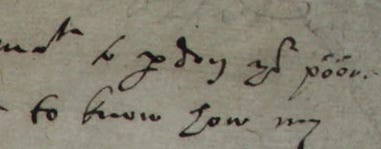 to pdon yr poor
to know how my